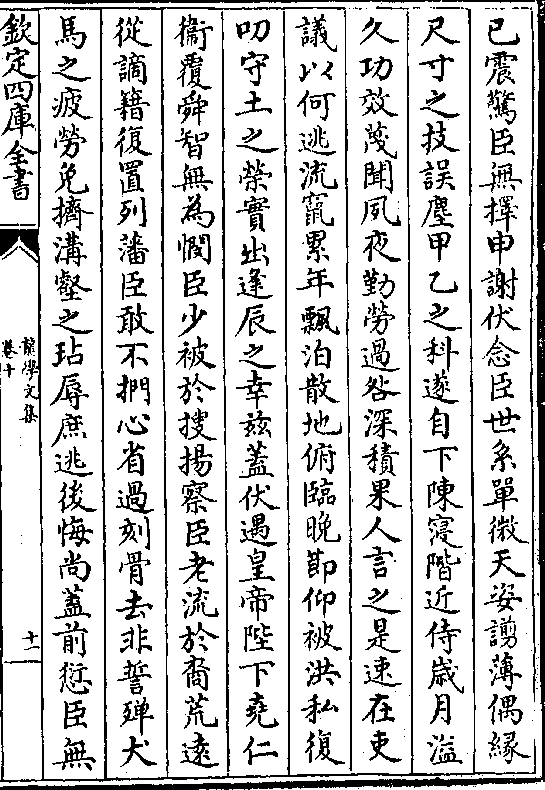 已震驚臣無擇申謝伏念臣世系單微天姿譾薄偶緣
尺寸之技誤塵甲乙之科遂自下陳寖階近侍歲月滋
久功效蔑聞夙夜勤勞過咎深積果人言之是速在吏
議以何逃流竄累年飄泊散地俯臨晚節仰被洪私復
叨守土之榮實出逢辰之幸兹蓋伏遇皇帝陛下堯仁
衞覆舜智無為憫臣少被於搜揚察臣老流於裔荒逺
從謫籍復置列藩臣敢不捫心省過刻骨去非誓殫犬
馬之疲勞免擠溝壑之玷辱庶逃後悔尚蓋前愆臣無
欽定四庫全書
卷十
十一